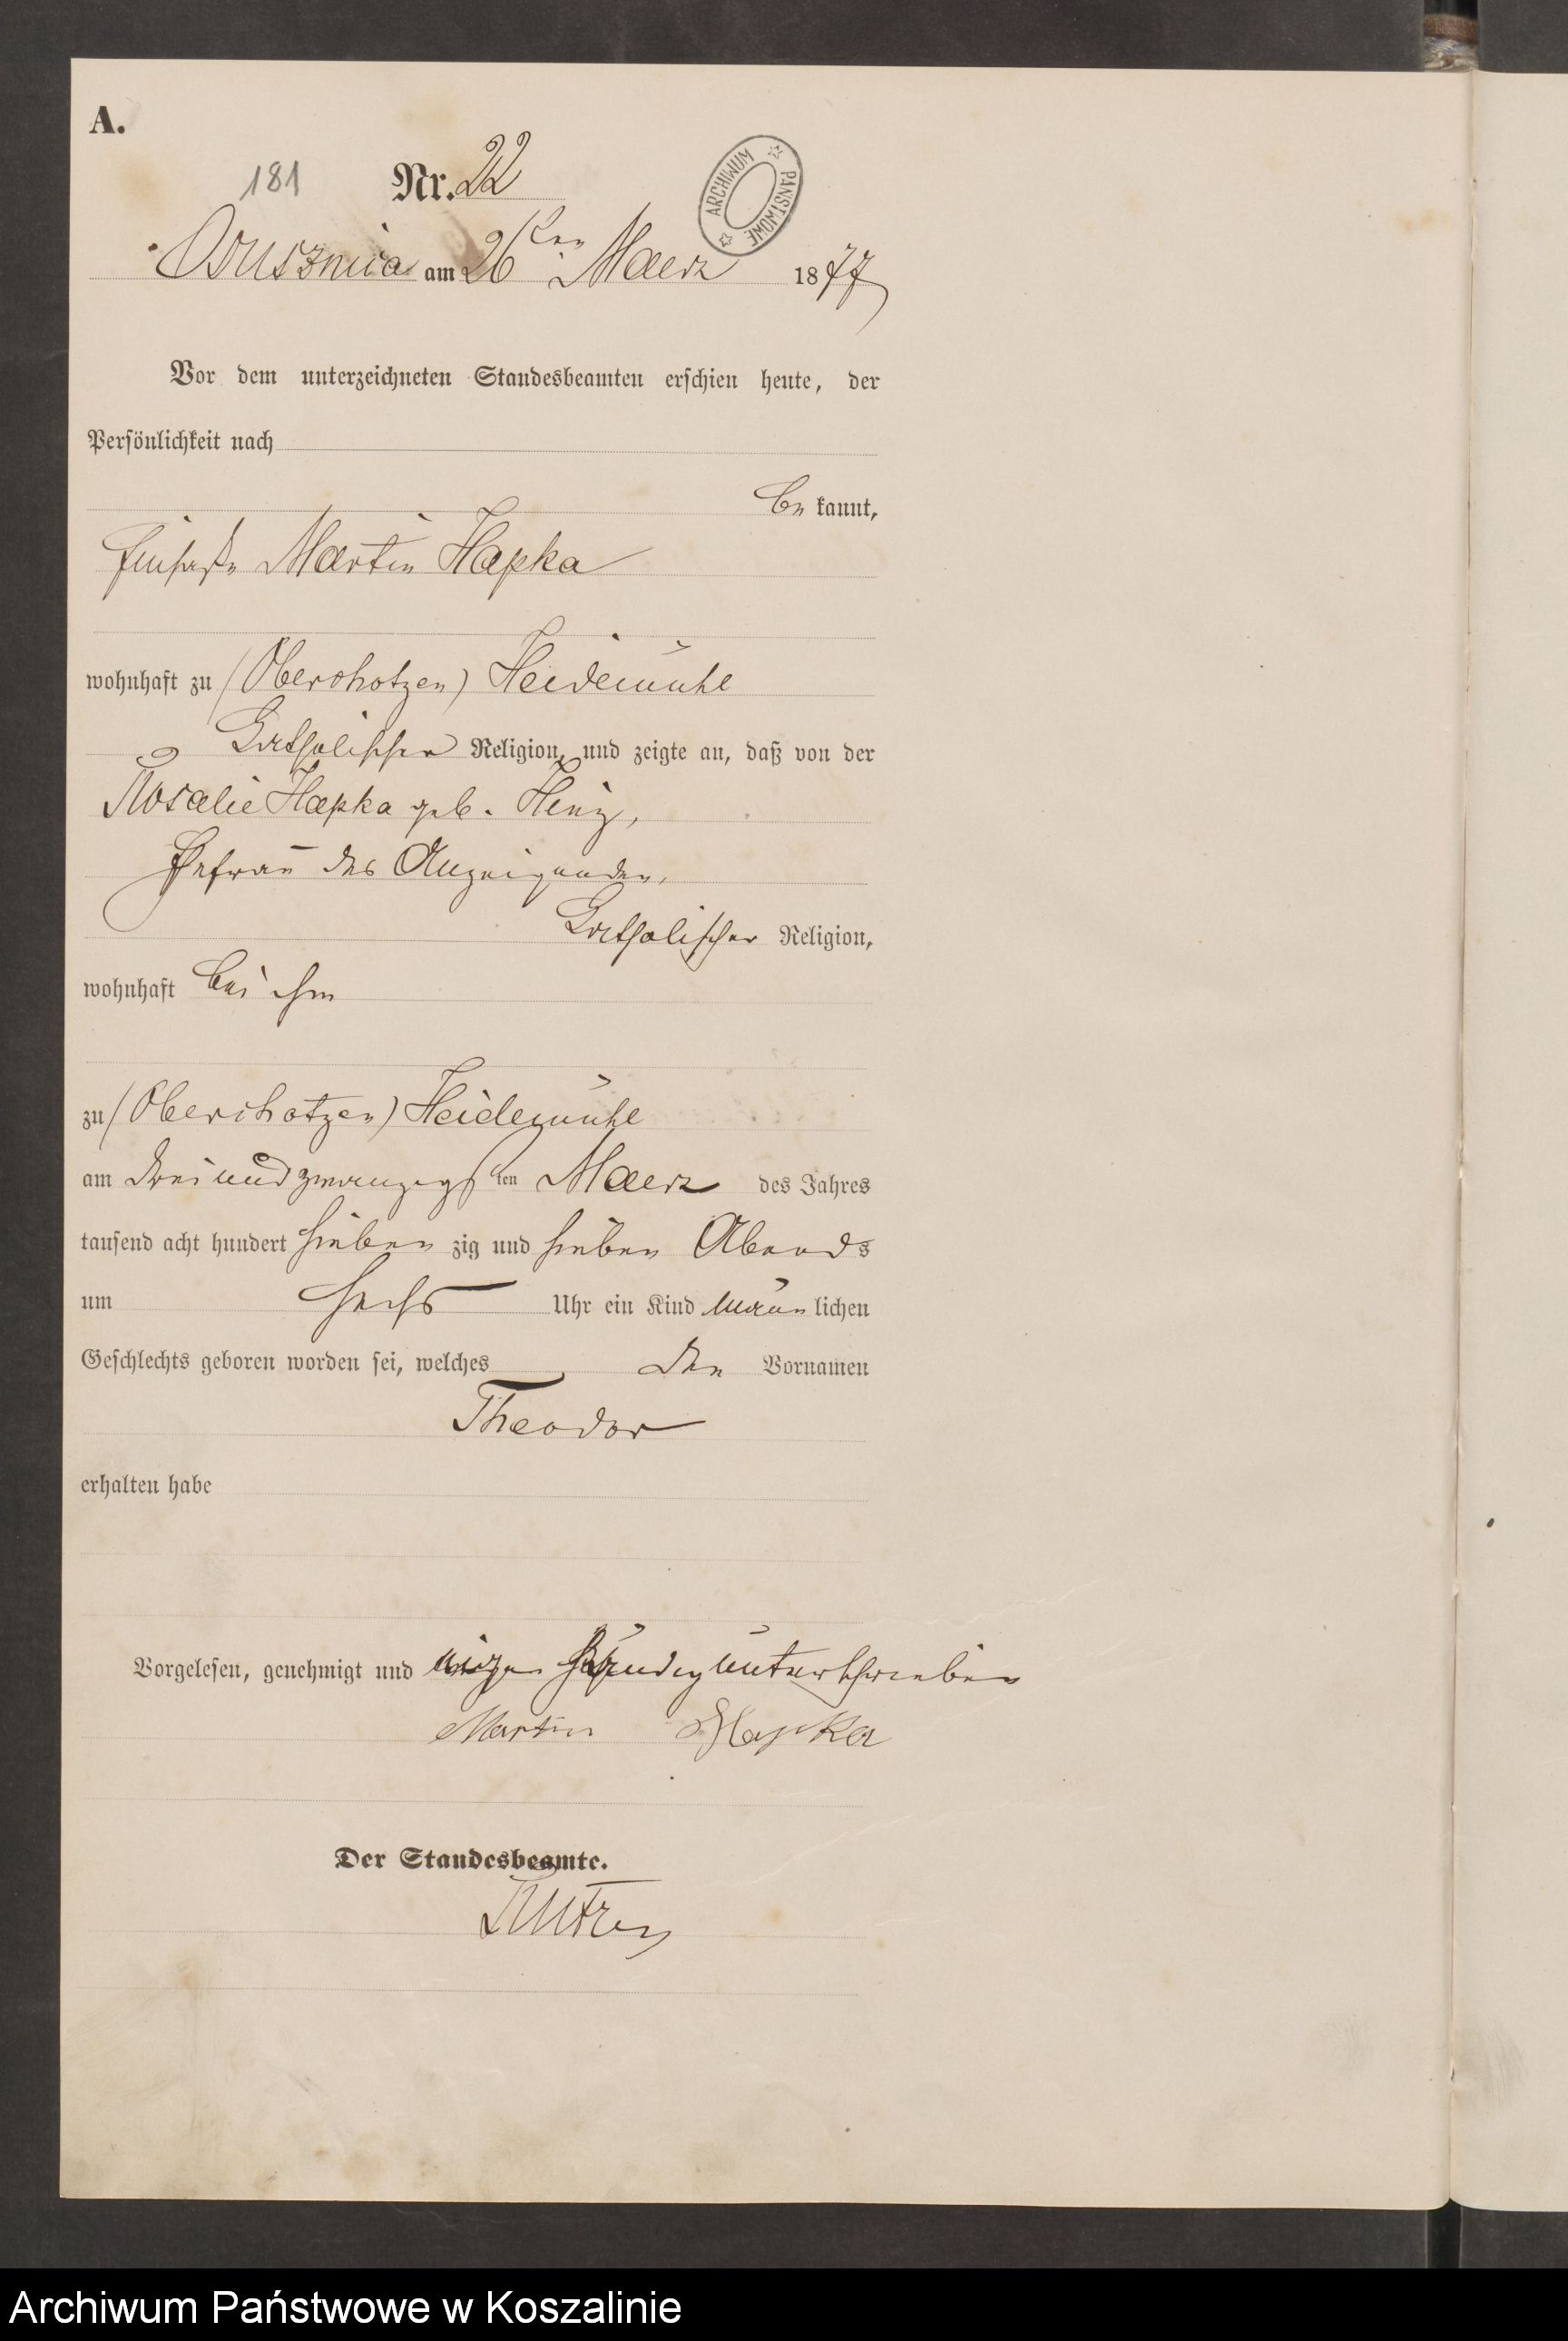 A.
181 Nr. 22
ARCHIWUM PAŃSTWOWE
Osusznica am 26ten Maerz 1877
Vor dem unterzeichneten Standesbeamten erschien heute, der
Persönlichkeit nach
be kannt,
Martin Hapka
wohnhaft zu (Oberchotzen) Heidemühl
katholischer Religion, und zeigte an, daß von der
Rosalie Hapka geb. Hinz,
Ehefrau des Anzeigenden,
katholischer Religion,
wohnhaft bei ihm
zu (Oberchotzen) Heidemühl
am dreiundzwanzigsten Maerz des Jahres
tausend acht hundert sieben zig und sieben Abends
um sechs Uhr ein Kind männlichen
Geschlechts geboren worden sei, welches den Vornamen
Theodor
erhalten habe
Vorgelesen, genehmigt und eigenhändig unterschrieben
Martin Hapka
Der Standesbeamte.
Archiwum Państwowe w Koszalinie